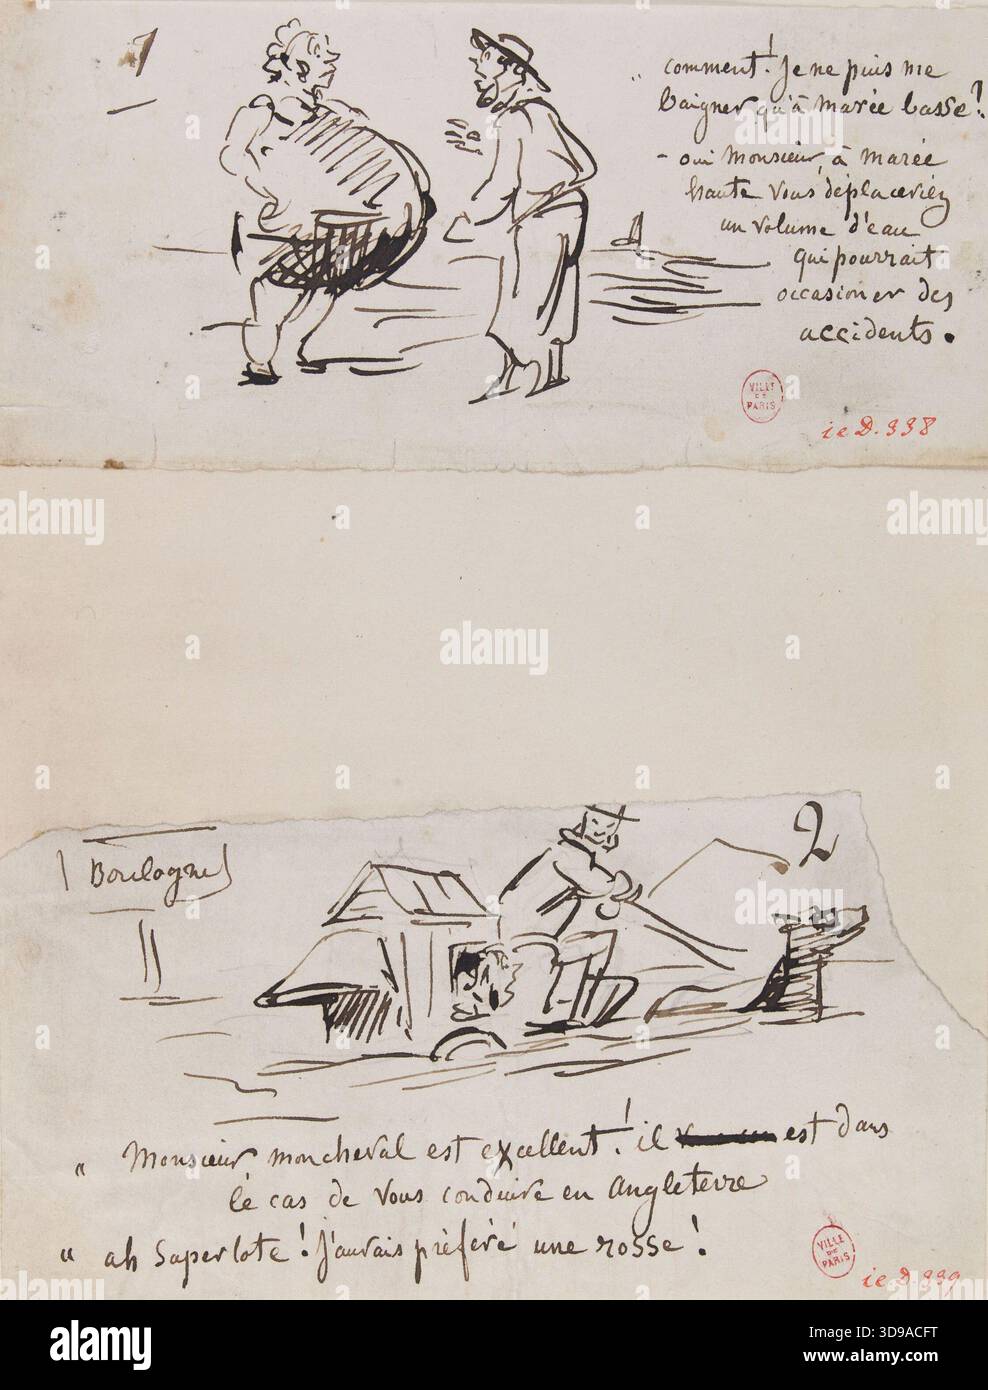 1
" comment! Je ne puis me
baigner qu'à marée basse?!
- oui Monsieur, à marée
haute vous déplaceriez
un volume d'eau
qui pourrait
occasioner des
accidents.
VILLE
DE
PARIS
ieD.338
alamy
2
Boulogne
" Monsieur, mon cheval est excellent! il est dans
le cas de vous conduire en Angleterre
" ah Saperlote! J'aurais préféré une rosse!
VILLE
DE
PARIS
ieD.339
alamy
Image ID: 3D9ACFT
www.alamy.com